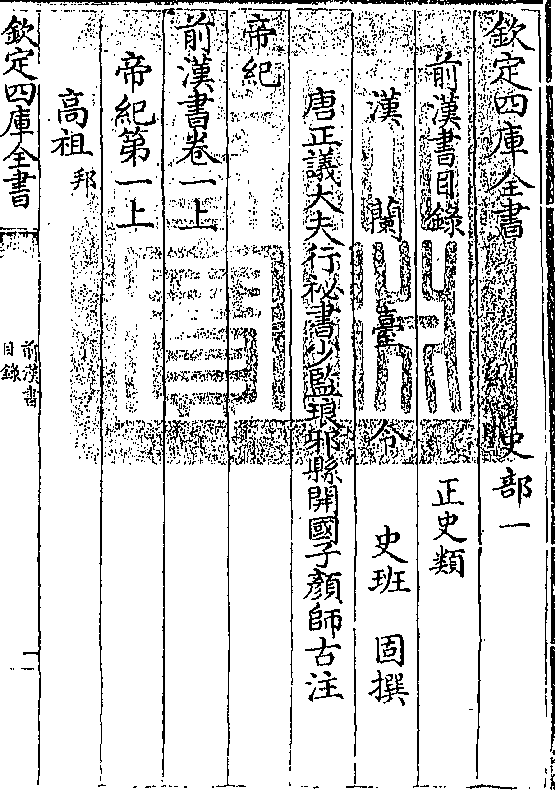 欽定四庫全書　史部一
前漢書目錄　正史類
漢　蘭　臺　令　史班　固撰
唐正議大夫行祕書少監琅邪縣開國子顏師古注
帝紀
前漢書卷一上
帝紀第一上
高祖邦
欽定四庫全書
前漢書
目錄
一